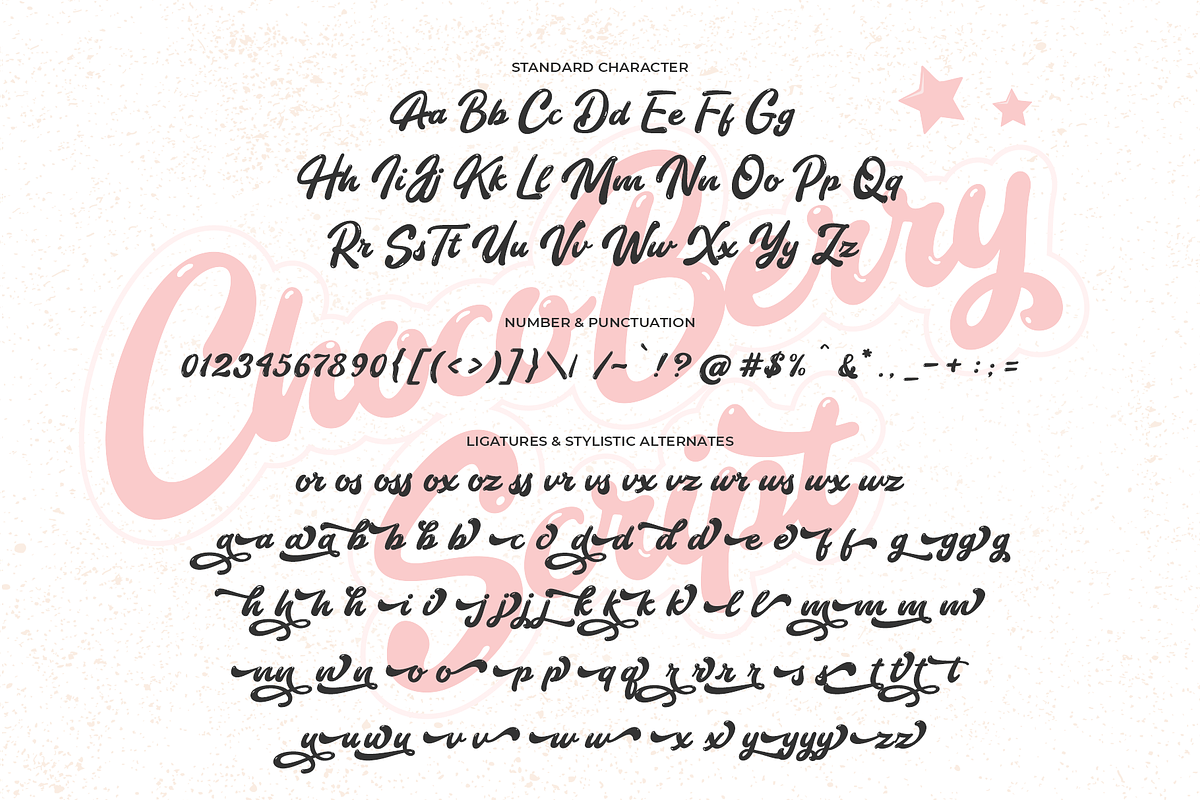 STANDARD CHARACTER
Aa Bb Cc Dd Ee Ff Gg
Hh Ii Jj Kk Ll Mm Nn Oo Pp Qq
Rr Ss Tt Uu Vv Ww Xx Yy Zz
ChocoBerry
NUMBER & PUNCTUATION
01234567890{[(<>)]}\| /~`!?@#$%^&*.,_-+:;=
Script
LIGATURES & STYLISTIC ALTERNATES
or os oss ox oz ss vr vs vx vz wr ws wx wz
a a a a b b b b c c d d d d e e f f g g g g
h h h h i i j j j j k k k k l l m m m m
n n n n o o p p q q r r r r s s t t t t
u u u u v v w w x x y y y y z z